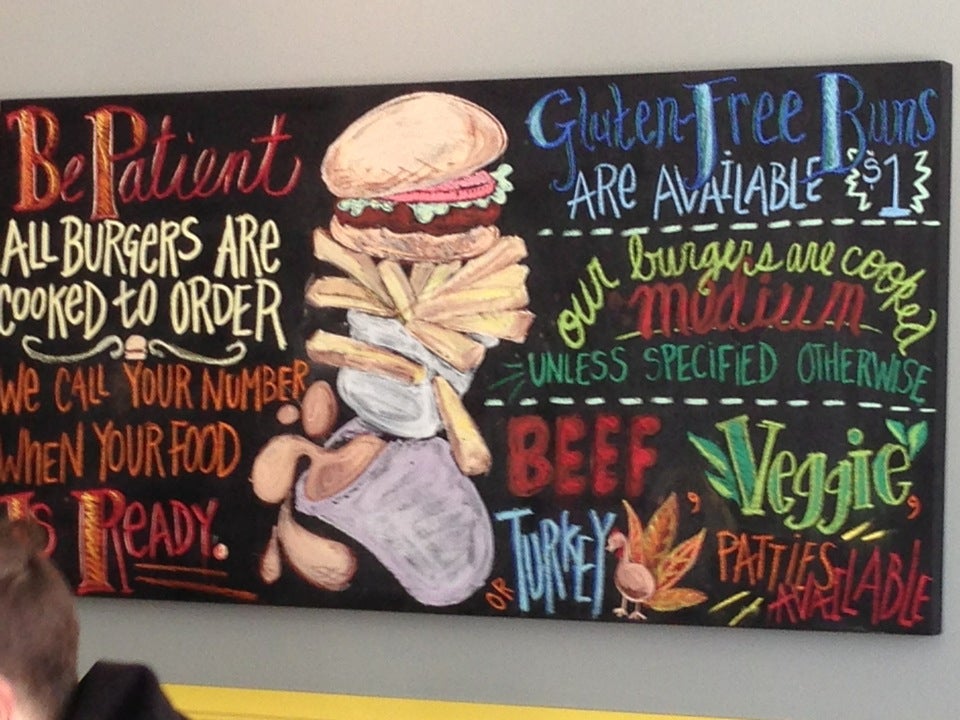 Be Patient
ALL BURGERS ARE
COOKED to ORDER
We CALL YOUR NUMBER
WHEN YOUR FOOD
Is READY.
Gluten-Free Buns
ARE AVAILABLE $1
our burgers are cooked
medium
UNLESS SPECIFIED OTHERWISE
BEEF, Veggie,
OR TURKEY PATTIES
AVAILABLE